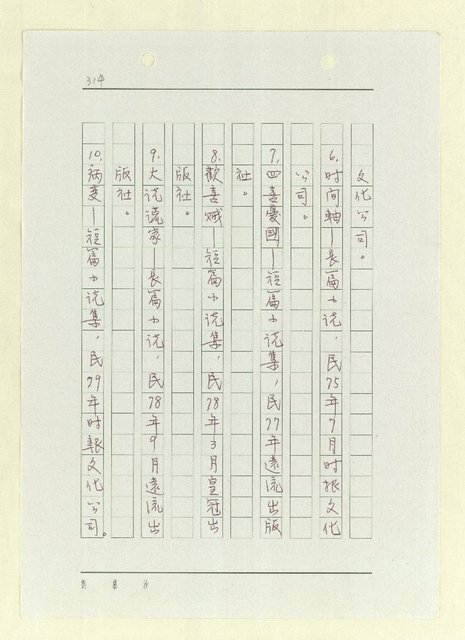 314
文化公司。
6.时间軸—長篇小说，民75年7月时报文化
公司。
7.四喜憂國—短篇小说集，民77年遠流出版
社。
8.歡喜賊—短篇小说集，民78年3月皇冠出
版社。
9.大说謊家—長篇小说，民78年9月遠流出
版社。
10.病变—短篇小说集，民79年时報文化公司。
劉慕沙